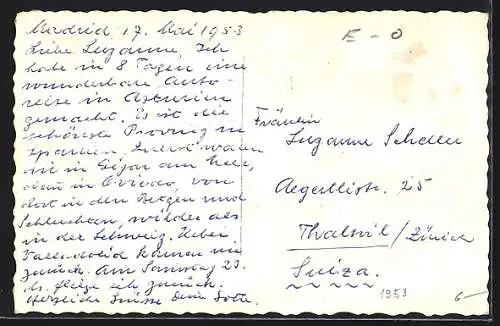 Madrid 17. Mai 1953
Liebe Suzanne, Ich
habe in 8 Tagen eine
wunderbare Auto-
reise in Asturien
gemacht. Es ist die
schönste Provinz in
Spanien. Zuerst waren
wir in Gijon am Meer,
dann in Oviedo, von
dort in den Bergen und
Schluchten, wilder als
in der Schweiz. Ueber
Valladolid kamen wir
zurück. Am Samstag 23.
ds. fliege ich zurück.
Herzliche Grüsse Dein
E - O
Fräulein
Suzanne Scheller
Aegertlistr. 25
Thalwil / Zürich
Suiza.
1953
6-